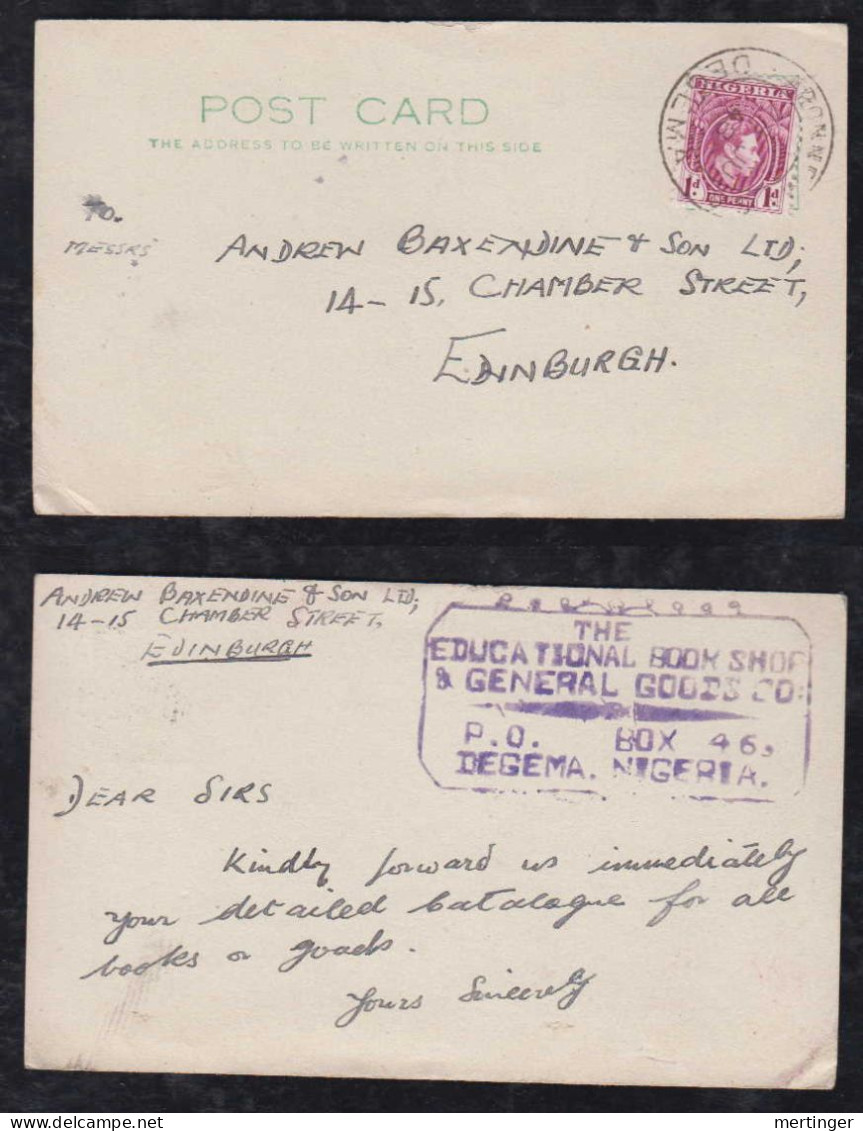 POST CARD
THE ADDRESS TO BE WRITTEN ON THIS SIDE
NIGERIA
1d
ONE PENNY
1d
DEGEMA
TO.
MESSRS
ANDREW BAXENDINE & SON LTD,
14-15, CHAMBER STREET,
EDINBURGH.
ANDREW BAXENDINE & SON LTD,
14-15 CHAMBER STREET,
EDINBURGH
THE
EDUCATIONAL BOOK SHOP
& GENERAL GOODS CO:
P.O. BOX 46,
DEGEMA. NIGERIA.
DEAR SIRS
Kindly forward us immediately
your detailed Catalogue for all
books or goods.
Yours Sincerely
mertinger